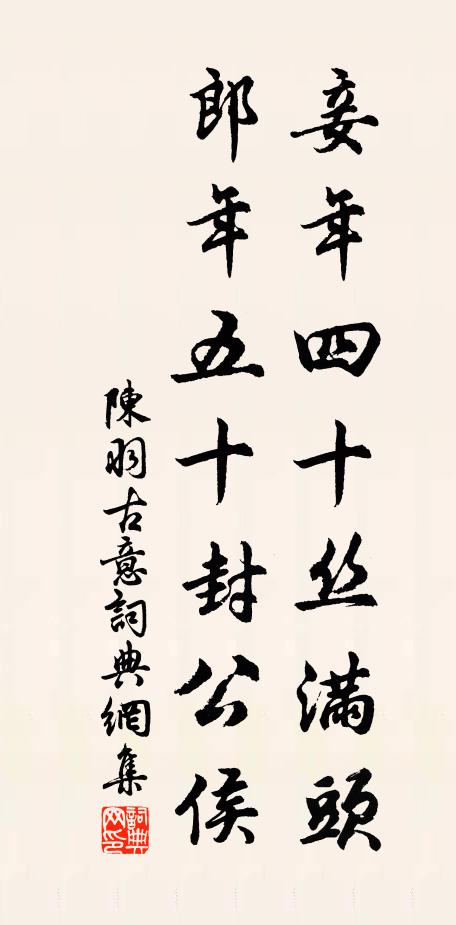 妾年四十丝滿頭
郎年五十封公侯
陳羽古意詞典網集
詞典网印